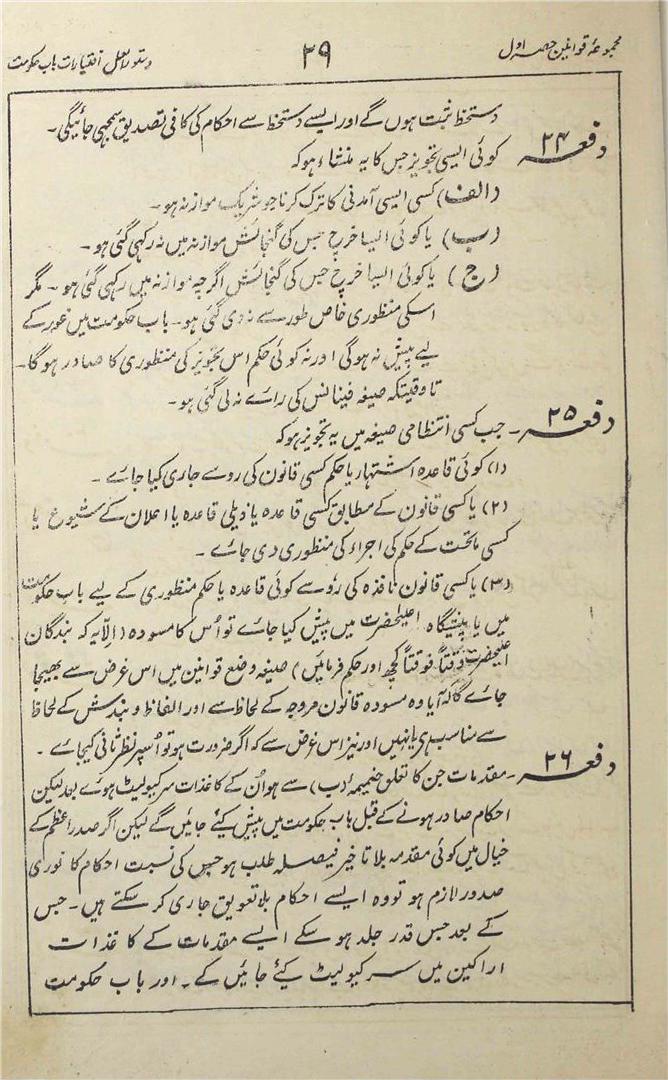 مجموعۂ قوانین حصہ اول
۲۹
دستور العمل اختیارات باب حکومت
دستخط ثبت ہوں گے اور ایسے دستخط سے احکام کی کافی تصدیق سمجہی جائیگی۔
دفعہ ۲۴ کوئی ایسی تجویز جس کا یہ منشاء ہو کہ
(الف) کسی ایسی آمدنی کا ترک کرنا جو شریک موازنہ ہو۔
(ب) یا کوئی ایسا خرچ جس کی گنجائش موازنہ میں نہ رکہی گئی ہو۔
(ج) یا کوئی ایسا خرچ جس کی گنجائش اگرچہ موازنہ میں رکہی گئی ہو۔ مگر
اسکی منظوری خاص طور سے نہ دی گئی ہو۔ باب حکومت میں غور کے
لیے پیش نہ ہوگی اور نہ کوئی حکم اس تجویز کی منظوری کا صادر ہوگا۔
تاوقیتکہ صیغہ فینانس کی رائے نہ لی گئی ہو۔
دفعہ ۲۵۔ جب کسی انتظامی صیغہ میں یہ تجویز ہو کہ
(۱) کوئی قاعدہ اشتہار یا حکم کسی قانون کی رو سے جاری کیا جائے۔
(۲) یا کسی قانون کے مطابق کسی قاعدہ یا ذیلی قاعدہ یا اعلان کے شیوع یا
کسی ماتحت کے حکم کی اجراء کی منظوری دی جائے۔
(۳) یا کسی قانون نافذہ کی رو سے کوئی قاعدہ یا حکم منظوری کے لیے باب حکومت
میں یا پیشگاہ اعلیحضرت میں پیش کیا جائے تو اُس کا مسودہ (الّا یہ کہ بندگان
اعلیحضرت وقتاً فوقتاً کچھ اور حکم فرمائیں) صیغہ وضع قوانین میں اس غرض سے بھیجا
جائے گا کہ آیا وہ مسودہ قانون مروجہ کے لحاظ سے اور الفاظ و بندش کے لحاظ
سے مناسب ہی یا نہیں اور نیز اس غرض سے کہ اگر ضرورت ہو تو اُسپر نظر ثانی کیجائے۔
دفعہ ۲۶۔ مقدمات جن کا تعلق ضمیمہ (ب) سے ہو اُن کے کاغذات سرکیولیٹ ہوئے بعد لیکن
احکام صادر ہونے کے قبل باب حکومت میں پیش کیئے جائیں گے لیکن اگر صدر اعظم کے
خیال میں کوئی مقدمہ بلا تاخیر فیصلہ طلب ہو جس کی نسبت احکام کا فوری
صدور لازم ہو تو وہ ایسے احکام بلا تعویق جاری کر سکتے ہیں۔ جس
کے بعد جس قدر جلد ہو سکے ایسے مقدمات کے کاغذات
اراکین میں سرکیولیٹ کیئے جائیں گے۔ اور باب حکومت